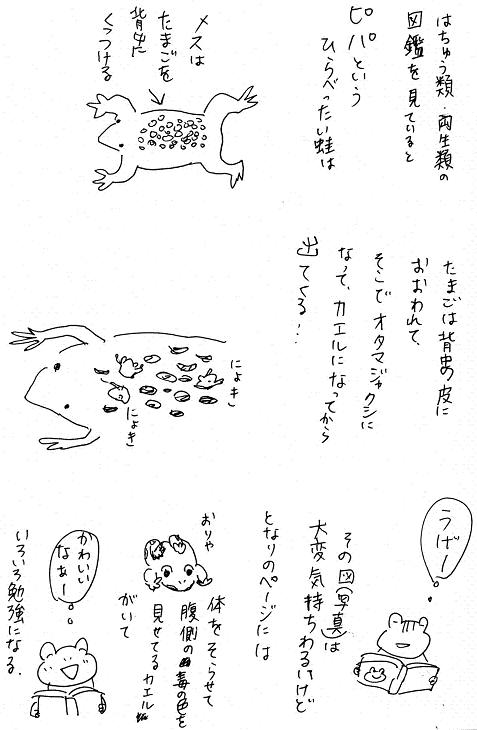 はちゅう類・両生類の
図鑑を見ていると
ピパという
ひらべったい蛙は
メスは
たまごを
背中に
くっつける
たまごは背中の皮に
おおわれて、
そこでオタマジャクシに
なって、カエルになってから
出てくる…
にょき
にょき
うげー
その図(写真)は
大変気持ちわるいけど
となりのページには
体をそらせて
腹側の毒の色を
見せてるカエル
がいて
おりゃ
かわいい
なぁー
いろいろ勉強になる.